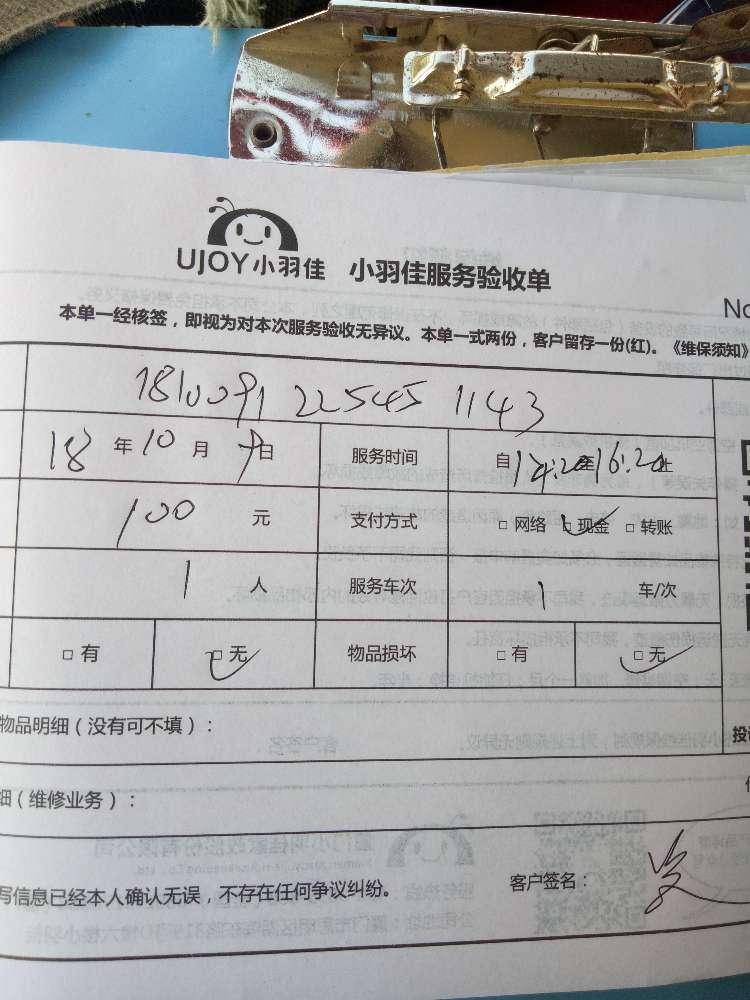 UJOY小羽佳 小羽佳服务验收单
No
本单一经核签，即视为对本次服务验收无异议。本单一式两份，客户留存一份(红)。《维保须知》
1810091225451143
18 年 10 月 9 日 服务时间 自 14:20 至 16:20 止
100 元 支付方式 □ 网络 □ 现金 □ 转账
1 人 服务车次 1 车/次
□ 有 □ 无 物品损坏 □ 有 □ 无
物品明细（没有可不填）：
投
细（维修业务）：
写信息已经本人确认无误，不存在任何争议纠纷。 客户签名：